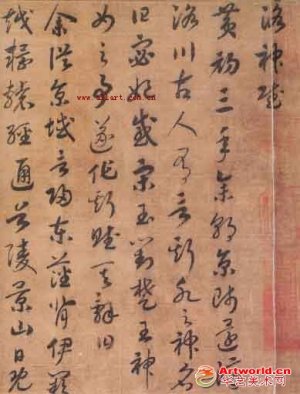 洛神賦
黃初三年余朝京師還濟
洛川古人有言斯水之神名
曰宓妃感宋玉對楚王神
女之事遂作斯賦其辭曰
余從京域言歸東藩背伊闕
越轘轅經通谷陵景山日既
Artworld.cn